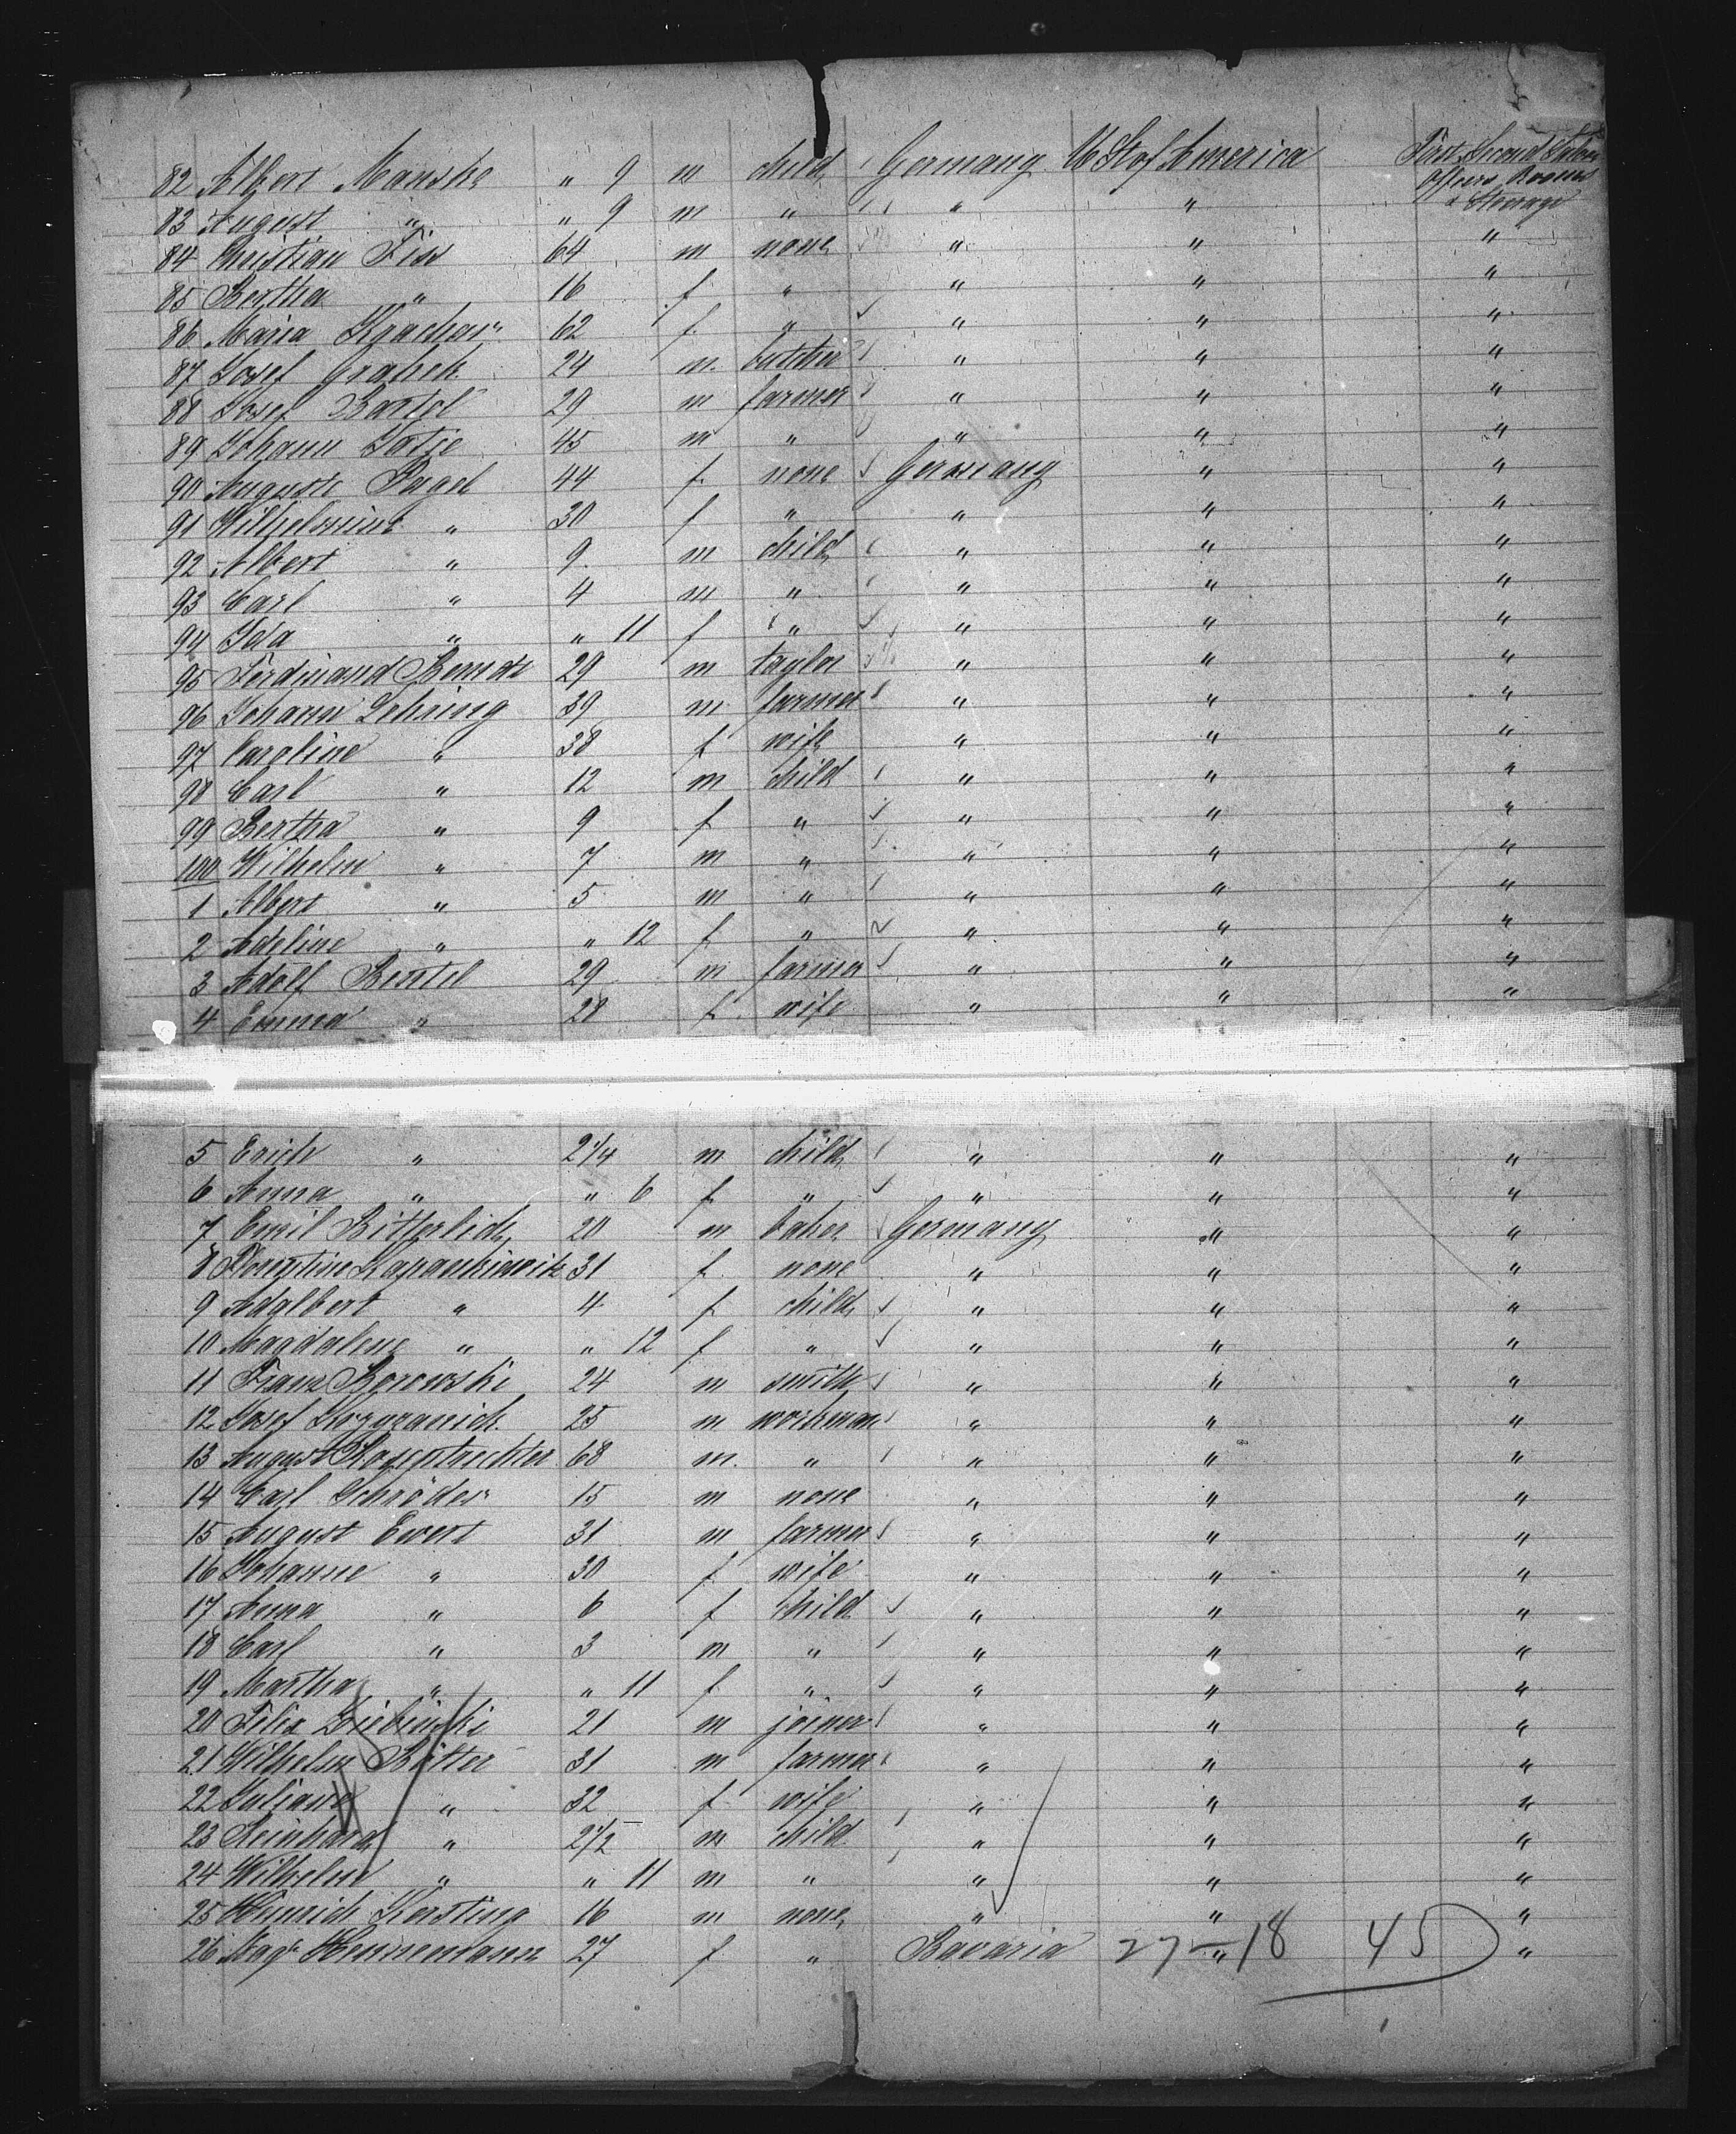 82 Albert Manske " 9 m child Germany U St of America First, Second Salon Officers Rooms & Steerage
83 August " " 9 m " " "
84 Christian Fiss 64 m none " " "
85 Bertha " 16 f " " " "
86 Maria 62 f " " " "
87 Josef 24 m. butcher " " "
88 Josef Bartel 29 m farmer " " "
89 Johann 45 m " " " "
90 Auguste Pagel 44 f none Germany " "
91 Wilhelmine " 30 f " " " "
92 Albert " 9 m child " " "
93 Carl " 4 m " " " "
94 Ida " " 11 f " " " "
95 Ferdinand Berndt 29 m taylor " " "
96 Johann Gehring 39 m farmer " " "
97 Caroline " 38 f wife " " "
98 Carl " 12 m child " " "
99 Bertha " 9 f " " " "
100 Wilhelm " 7 m " " " "
1 Albert " 5 m " " " "
2 Adeline " " 12 f " " " "
3 Adolf Bertel 29 m farmer " " "
4 Emma " 28 f wife " " "
5 Erich " 2 1/4 m child " " "
6 Anna " " 6 f " " " "
7 Emil Bitterlich 20 m baker Germany " "
8 31 f none " " "
9 Adalbert " 4 f child " " "
10 Magdalene " " 12 f " " " "
11 Franz Borowski 24 m smith " " "
12 Josef 25 m workman " " "
13 August 68 m. " " " "
14 Carl Schröder 15 m none " " "
15 August Ewert 31 m farmer " " "
16 Johanne " 30 f wife " " "
17 Anna " 6 f child " " "
18 Carl " 3 m " " " "
19 Martha " " 11 f " " " "
20 Felix 21 m joiner " " "
21 Wilhelm 31 m farmer " " "
22 Juliane " 32 f wife " " "
23 Reinhard " 2 1/2 m child " " "
24 Wilhelm " " 11 m " " " "
25 Heinrich Kersting 16 m none " " "
26 Magd. Heinemann 27 f " Bavaria 27 - 18 " 45 "